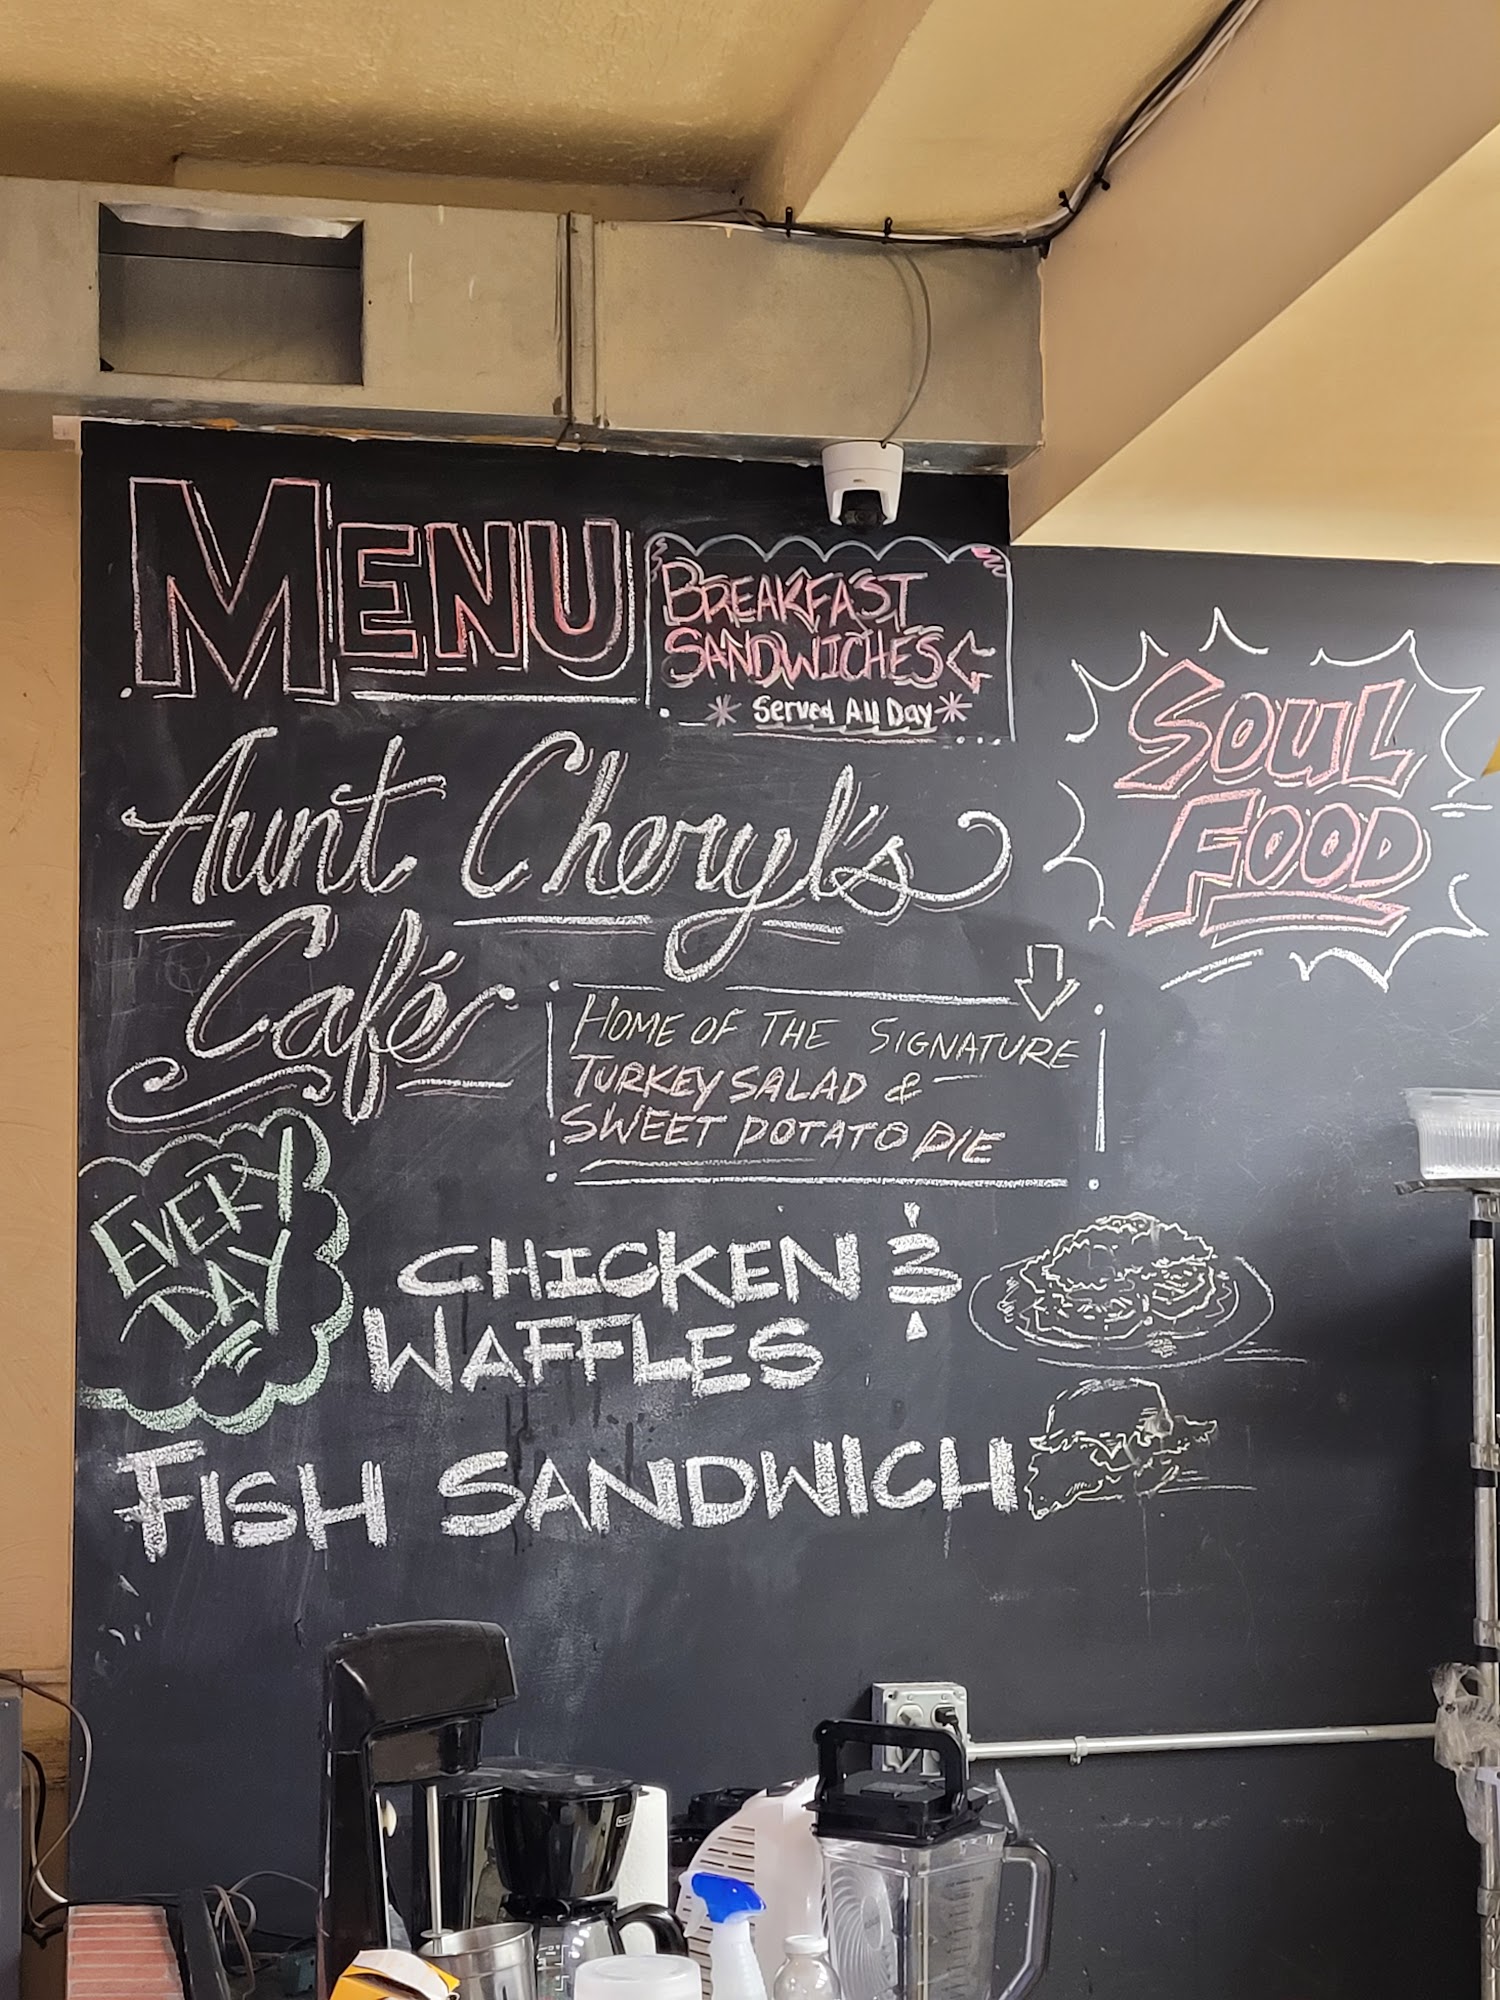 MENU
BREAKFAST
SANDWICHES
* Served All Day *
SOUL
FOOD
Aunt Cheryl's
Café
HOME OF THE SIGNATURE
TURKEY SALAD &
SWEET POTATO PIE
EVERY
DAY
CHICKEN &
WAFFLES
FISH SANDWICH